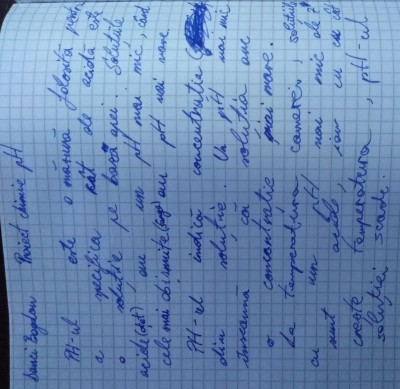 Danci Bogdan Proiect chimie pH
PH-ul este o mărimă folosită
a specifica cât de acidă este
o soluție pe bază apei. Soluțiile
acide au un pH mai mic, iar
cele mai obișnuite au pH mai mare
PH-ul indică concentratia
din solutie. Un pH mai mic
înseamnă că solutia are
o concentratie mai mare.
La temperatura camerei, soluțiile
cu un pH mai mic de 7
sunt acide, iar cu cât
creste temperatura, pH-ul
solutiei scade.